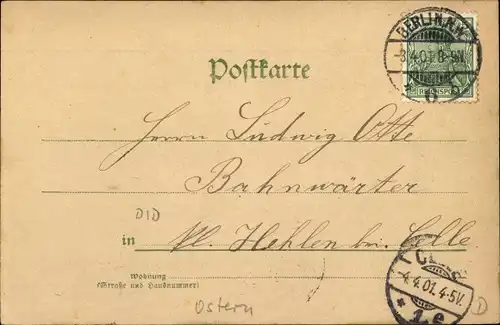 BERLIN N.W.
-3.4.01.8-9N.
REICHSPOST
Postkarte
Herrn Ludwig Otte
Bahnwärter
DID
in Kl. Hehlen bei Celle
CELLE
4.4.01.4-5V.
* 1e
Wohnung
(Straße und Hausnummer)
Ostern
D